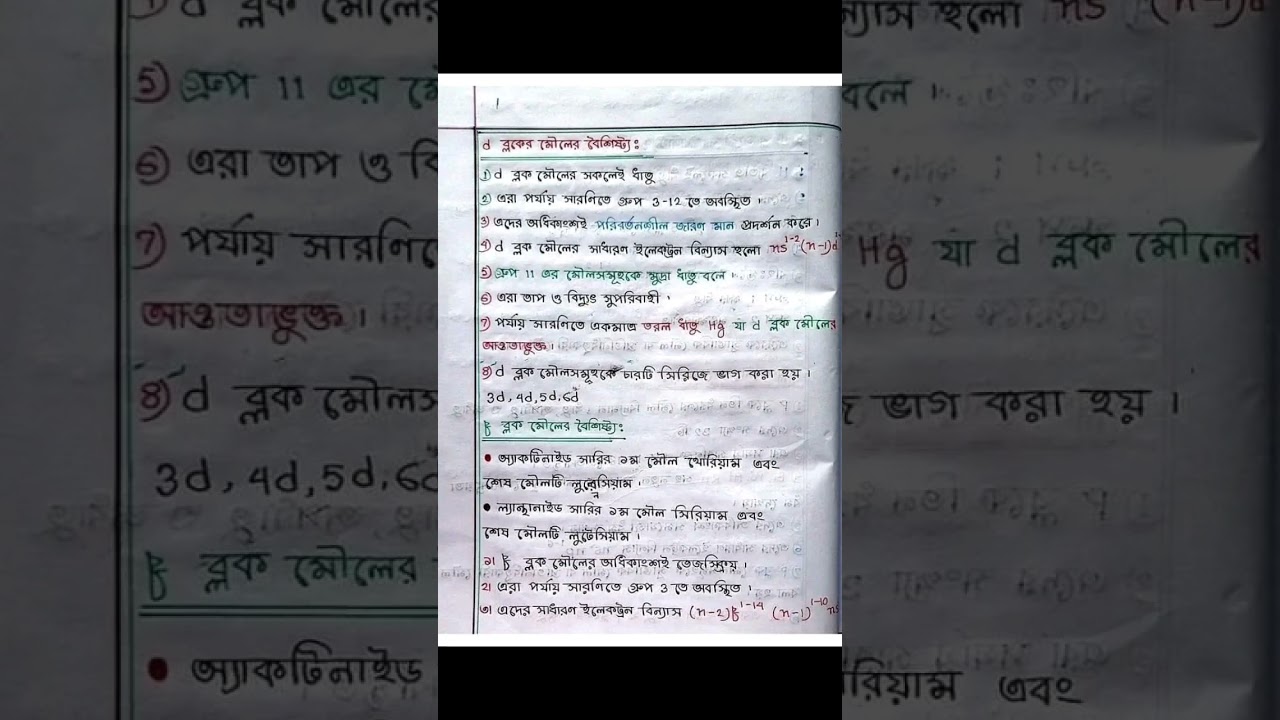 1
d ব্লকের মৌলের বৈশিষ্ট্যঃ
1) d ব্লক মৌলের সকলেই ধাতু
2) এরা পর্যায় সারণিতে গ্রুপ 3-12 তে অবস্থিত।
3) এদের অধিকাংশই পরিবর্তনশীল জারণ মান প্রদর্শন করে।
4) d ব্লক মৌলের সাধারণ ইলেকট্রন বিন্যাস হলো ns¹⁻² (n-1)d
5) গ্রুপ 11 এর মৌলসমূহকে মুদ্রা ধাতু বলে।
6) এরা তাপ ও বিদ্যুৎ সুপরিবাহী।
7) পর্যায় সারণিতে একমাত্র তরল ধাতু Hg যা d ব্লক মৌলের
আওতাভুক্ত।
8) d ব্লক মৌলসমূহকে চারটি সিরিজে ভাগ করা হয়।
3d, 4d, 5d, 6d
f ব্লক মৌলের বৈশিষ্ট্যঃ
• অ্যাকটিনাইড সারির ১ম মৌল থোরিয়াম এবং
শেষ মৌলটি লরেন্সিয়াম।
• ল্যান্থানাইড সারির ১ম মৌল সিরিয়াম এবং
শেষ মৌলটি লুটেসিয়াম।
১। f ব্লক মৌলের অধিকাংশই তেজস্ক্রিয়।
২। এরা পর্যায় সারণিতে গ্রুপ 3 তে অবস্থিত।
৩। এদের সাধারণ ইলেকট্রন বিন্যাস (n-2)f¹⁻¹⁴ (n-1)¹⁻¹⁰ ns